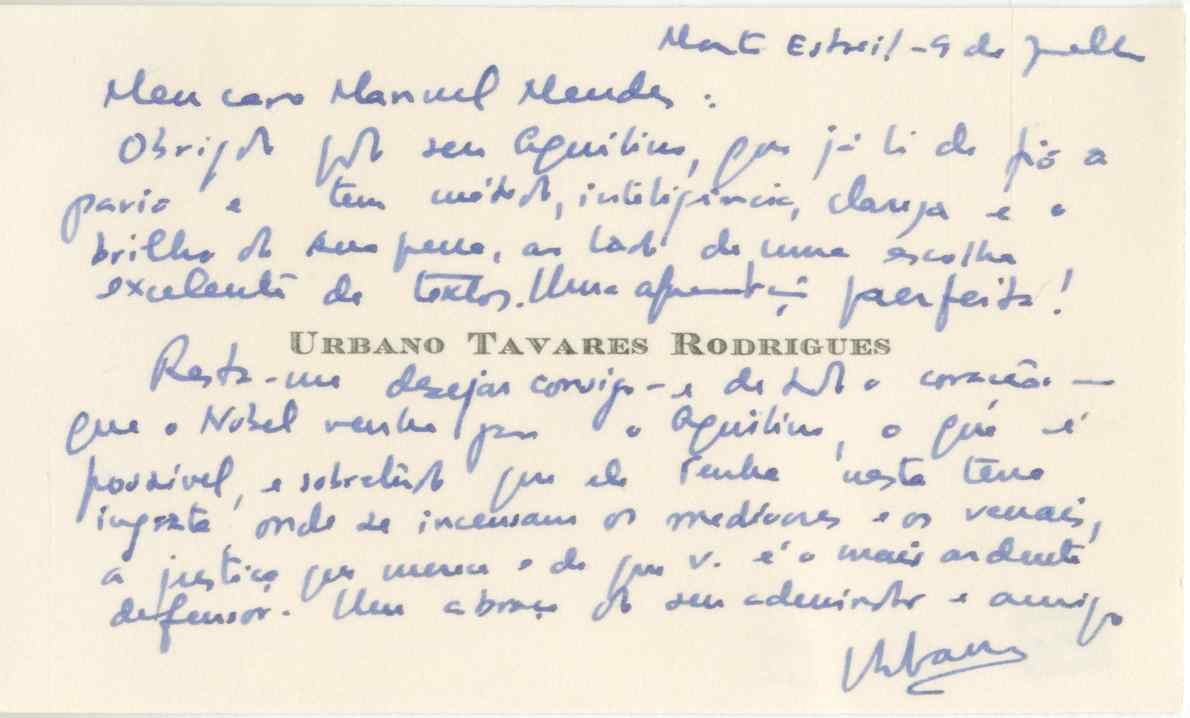 Monte Estoril - 9 de Julho
Meu caro Manuel Mendes:
Obrigado pelo seu Aquilino, que já li de fio a
pavio e tem método, inteligência, clareza e o
brilho da sua pena, ao lado de uma escolha
excelente de textos. Uma apresentação perfeita!
URBANO TAVARES RODRIGUES
Resta-me desejar consigo - e de todo o coração -
que o Nobel venha para o Aquilino, o que é
possível, e sobretudo que ele tenha nesta terra
ingrata, onde se incensam os medíocres e os venais,
a justiça que merece e de que v. é o mais ardente
defensor. Um abraço do seu admirador e amigo
Urbano